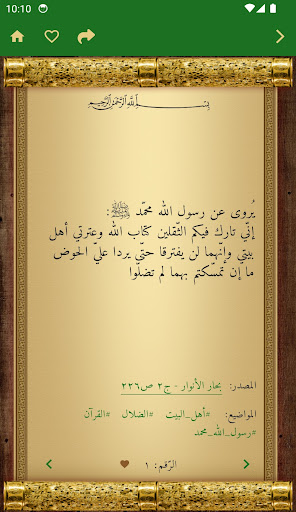 10:10
بِسْمِ اللَّهِ الرَّحْمَٰنِ الرَّحِيمِ
يُروى عن رسول الله محمّد ﷺ:
إنّي تارك فيكم الثّقلين كتاب الله وعترتي أهل
بيتي وإنّهما لن يفترقا حتّى يردا عليّ الحوض
ما إن تمسّكتم بهما لم تضلّوا
المصدر: بحار الأنوار - ج٢ ص٢٢٦
المواضيع: #أهل_البيت #الضلال #القرآن
#رسول_الله_محمد
الرّقم: ١